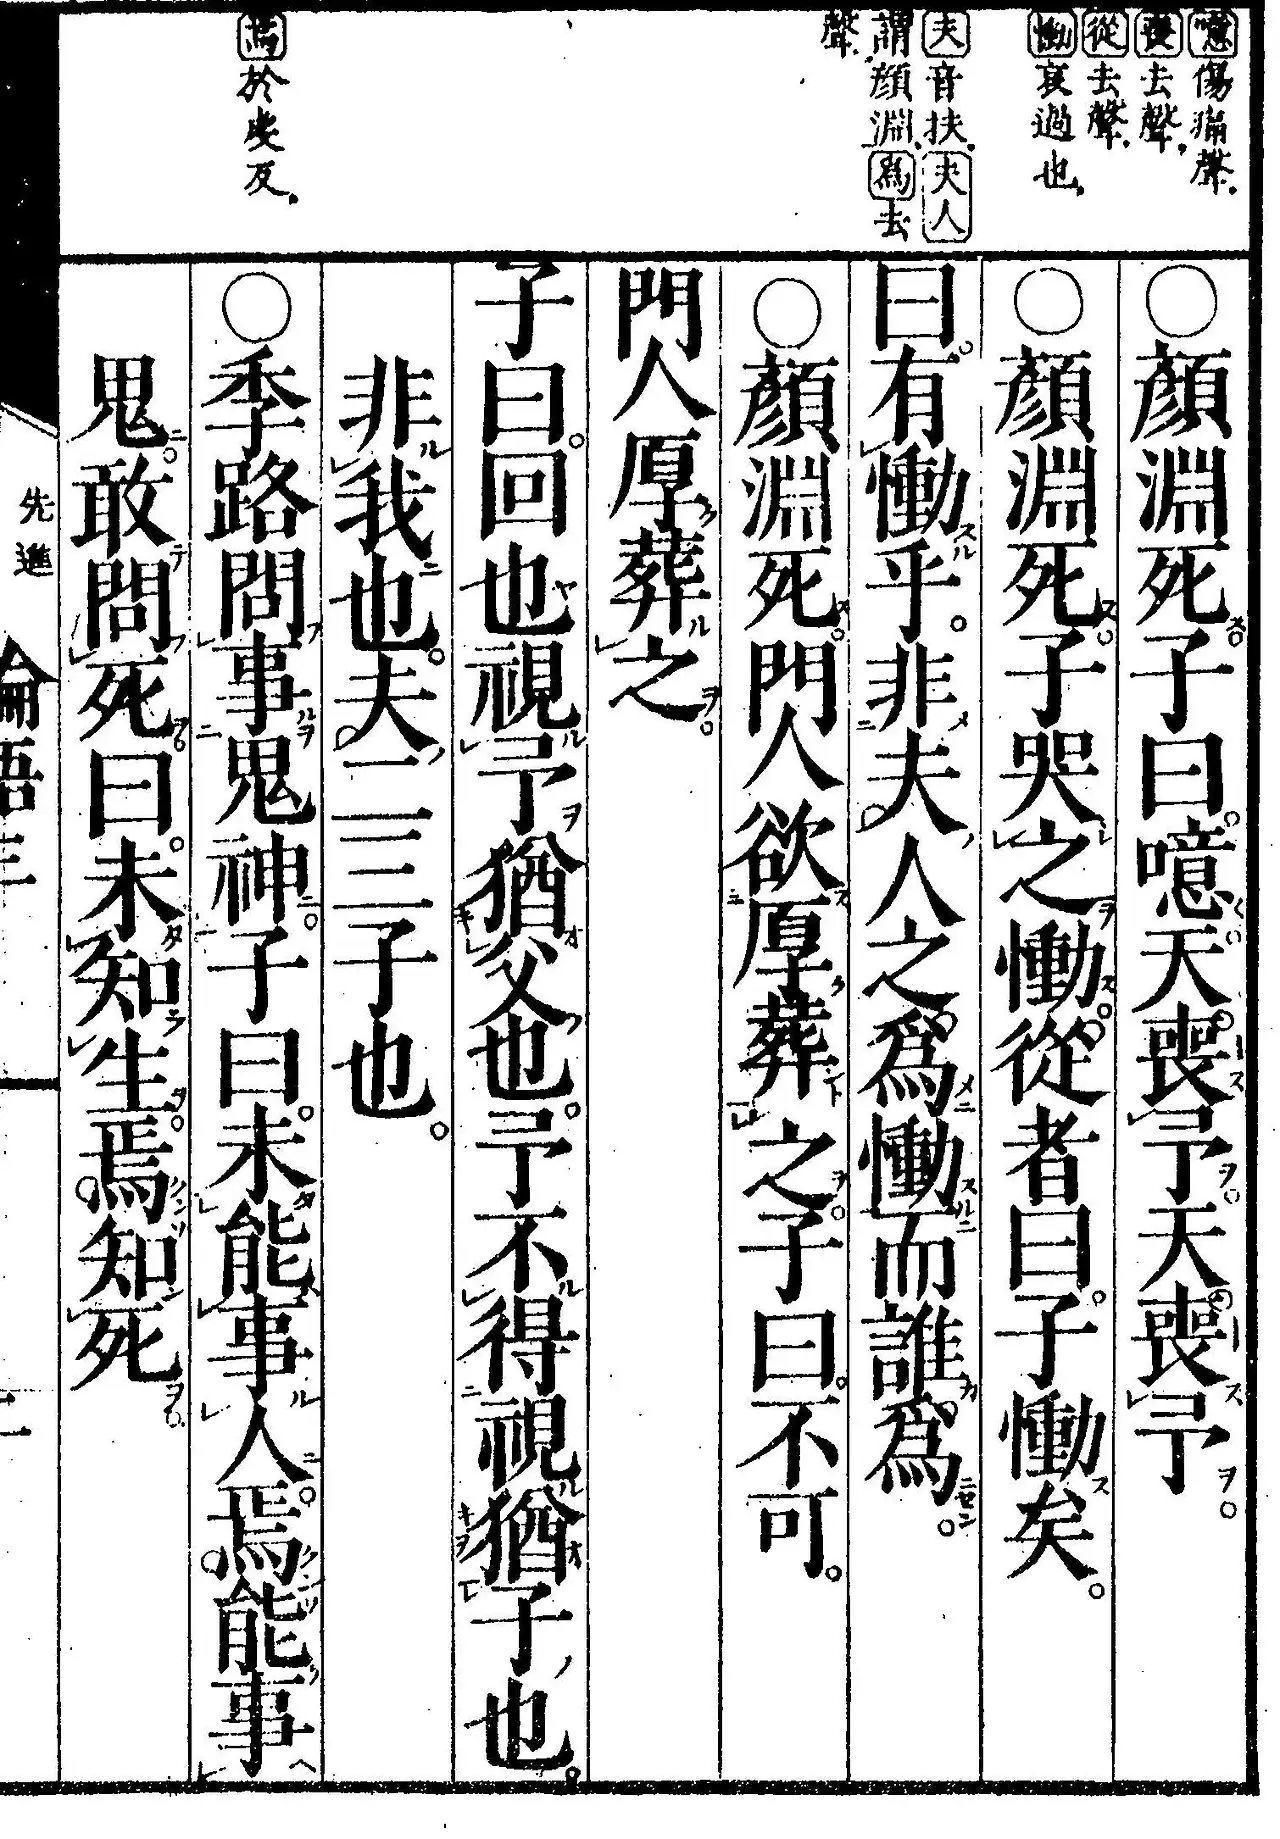 噫傷痛聲。
喪去聲。
從去聲。
慟哀過也。
夫音扶。夫人
謂顏淵。爲去
聲。
焉於虔反。
○顏淵死。子曰。噫。天喪予。天喪予。
○顏淵死。子哭之慟。從者曰。子慟矣。
曰。有慟乎。非夫人之爲慟而誰爲。
○顏淵死。門人欲厚葬之。子曰。不可。
門人厚葬之。
子曰。回也視予猶父也。予不得視猶子也。
非我也。夫二三子也。
○季路問事鬼神。子曰。未能事人。焉能事
鬼。敢問死。曰。未知生。焉知死。
先進
論語三